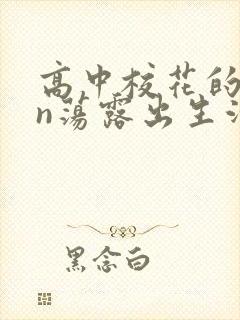 高中校花的
n荡露出生活
黑念白